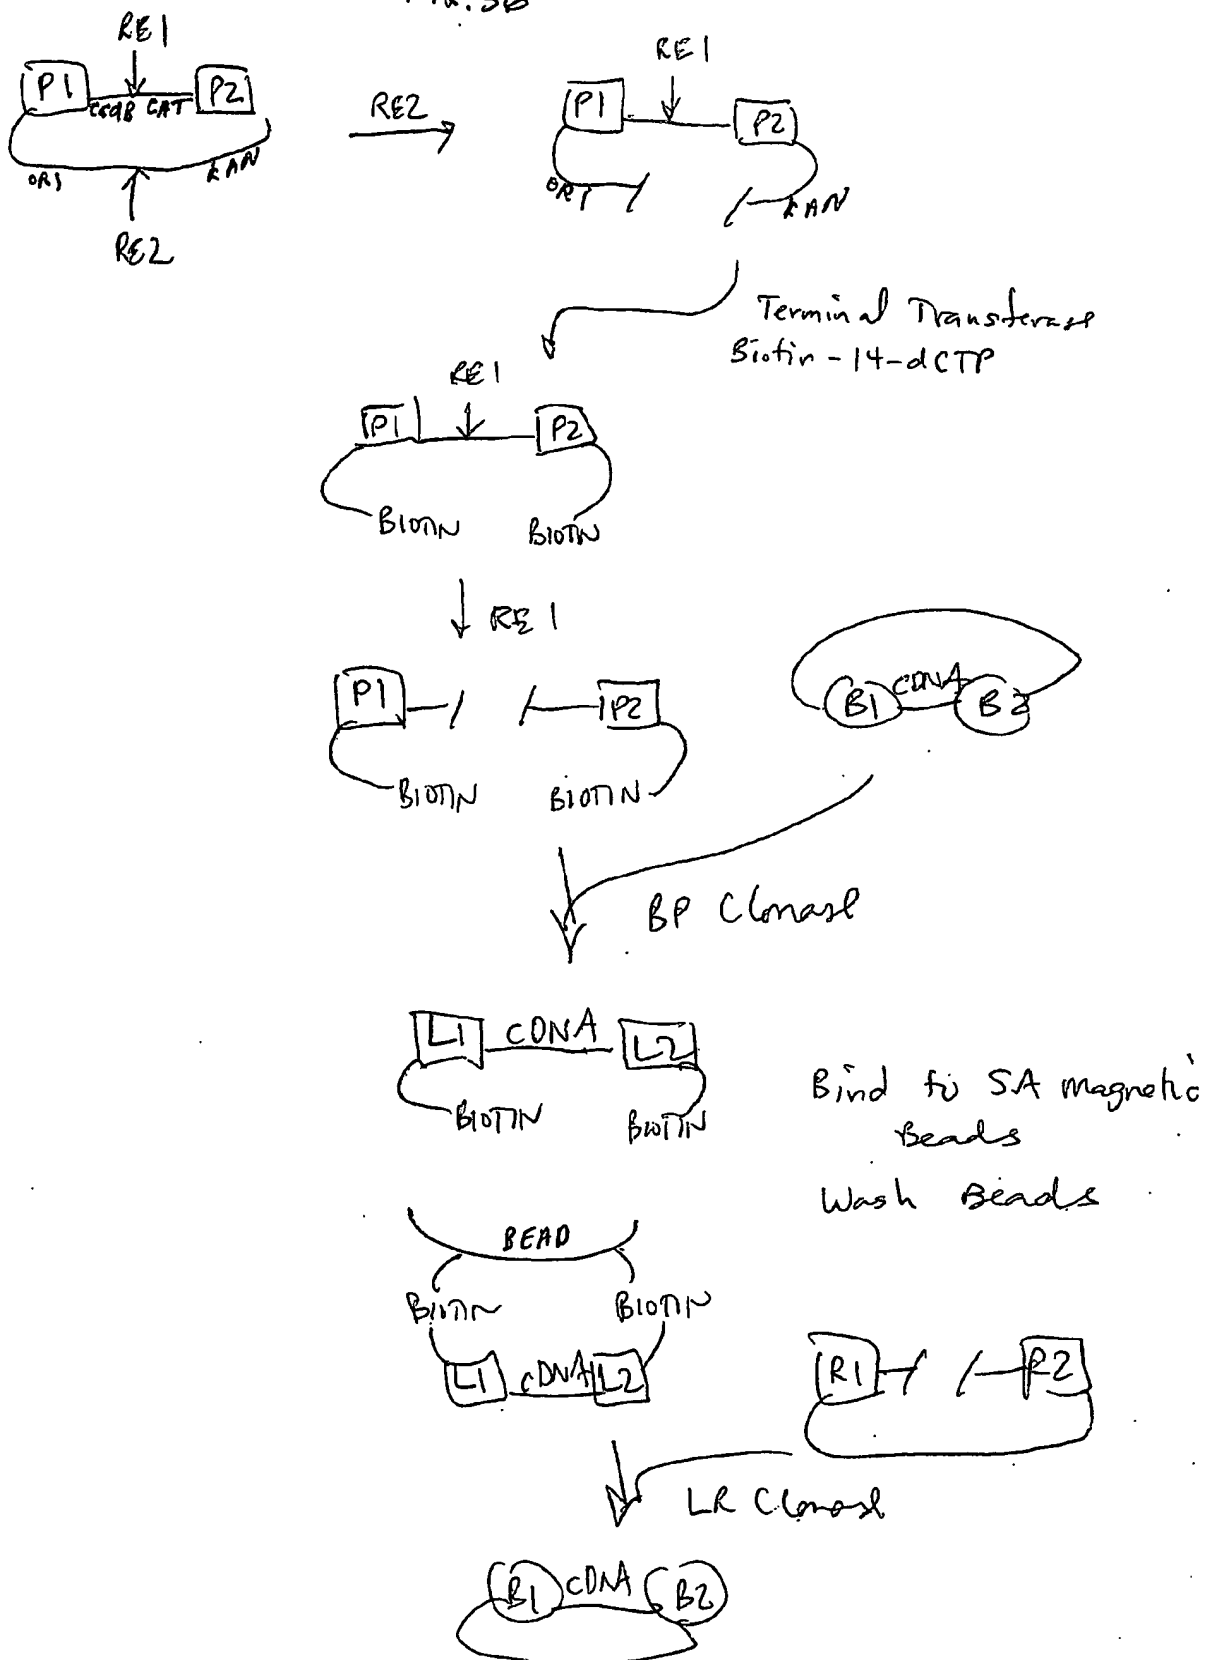 RE1
P1
P2
CcdB CAT
ORI
KAN
RE2
RE2
RE1
P1
P2
ORI
KAN
Terminal Transferase
Biotin-14-dCTP
RE1
P1
P2
BIOTIN
BIOTIN
RE1
P1
P2
BIOTIN
BIOTIN
B1
CDNA
B2
BP Clonase
L1
CDNA
L2
BIOTIN
BIOTIN
Bind to SA magnetic
Beads
Wash Beads
BEAD
BIOTIN
BIOTIN
L1
CDNA
L2
R1
R2
LR Clonase
B1
CDNA
B2